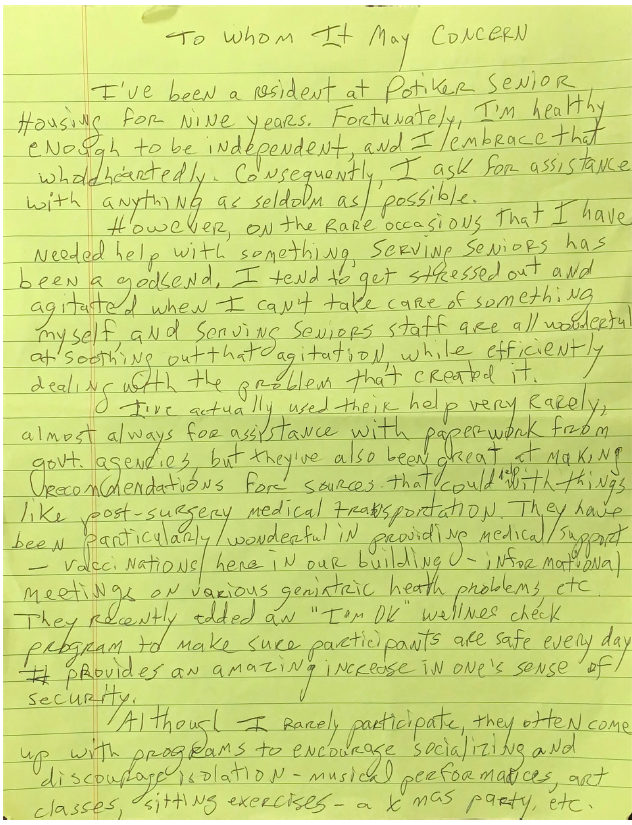 To Whom It May Concern
I've been a resident at Potiker Senior
Housing for nine years. Fortunately, I'm healthy
enough to be independent, and I embrace that
wholdheartedly. Consequently, I ask for assistance
with anything as seldom as possible.
However, on the rare occasions that I have
needed help with something, Serving Seniors has
been a godsend. I tend to get stressed out and
agitated when I can't take care of something
myself, and Serving Seniors staff are all wonderful
at soothing out that agitation while efficiently
dealing with the problem that created it.
I've actually used their help very rarely,
almost always for assistance with paperwork from
govt. agencies, but they've also been great at making
recommendations for sources that could help with things
like post-surgery medical transportation. They have
been particularly wonderful in providing medical support
- vaccinations here in our building - informational
meetings on various geriatric heath problems etc.
They recently added an "I'm OK" wellnes check
program to make sure participants are safe every day
It provides an amazing increase in one's sense of
security.
Although I rarely participate, they often come
up with programs to encourage socializing and
discourage isolation - musical performances, art
classes, sitting exercises - a Xmas party, etc.